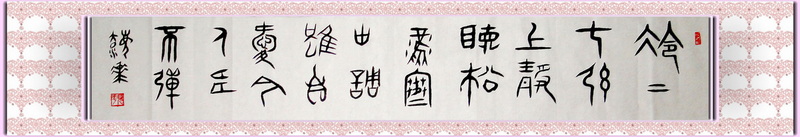 泠〻
七弦
上靜
聽松
風寒
古調
雖自
愛今
人多
不彈